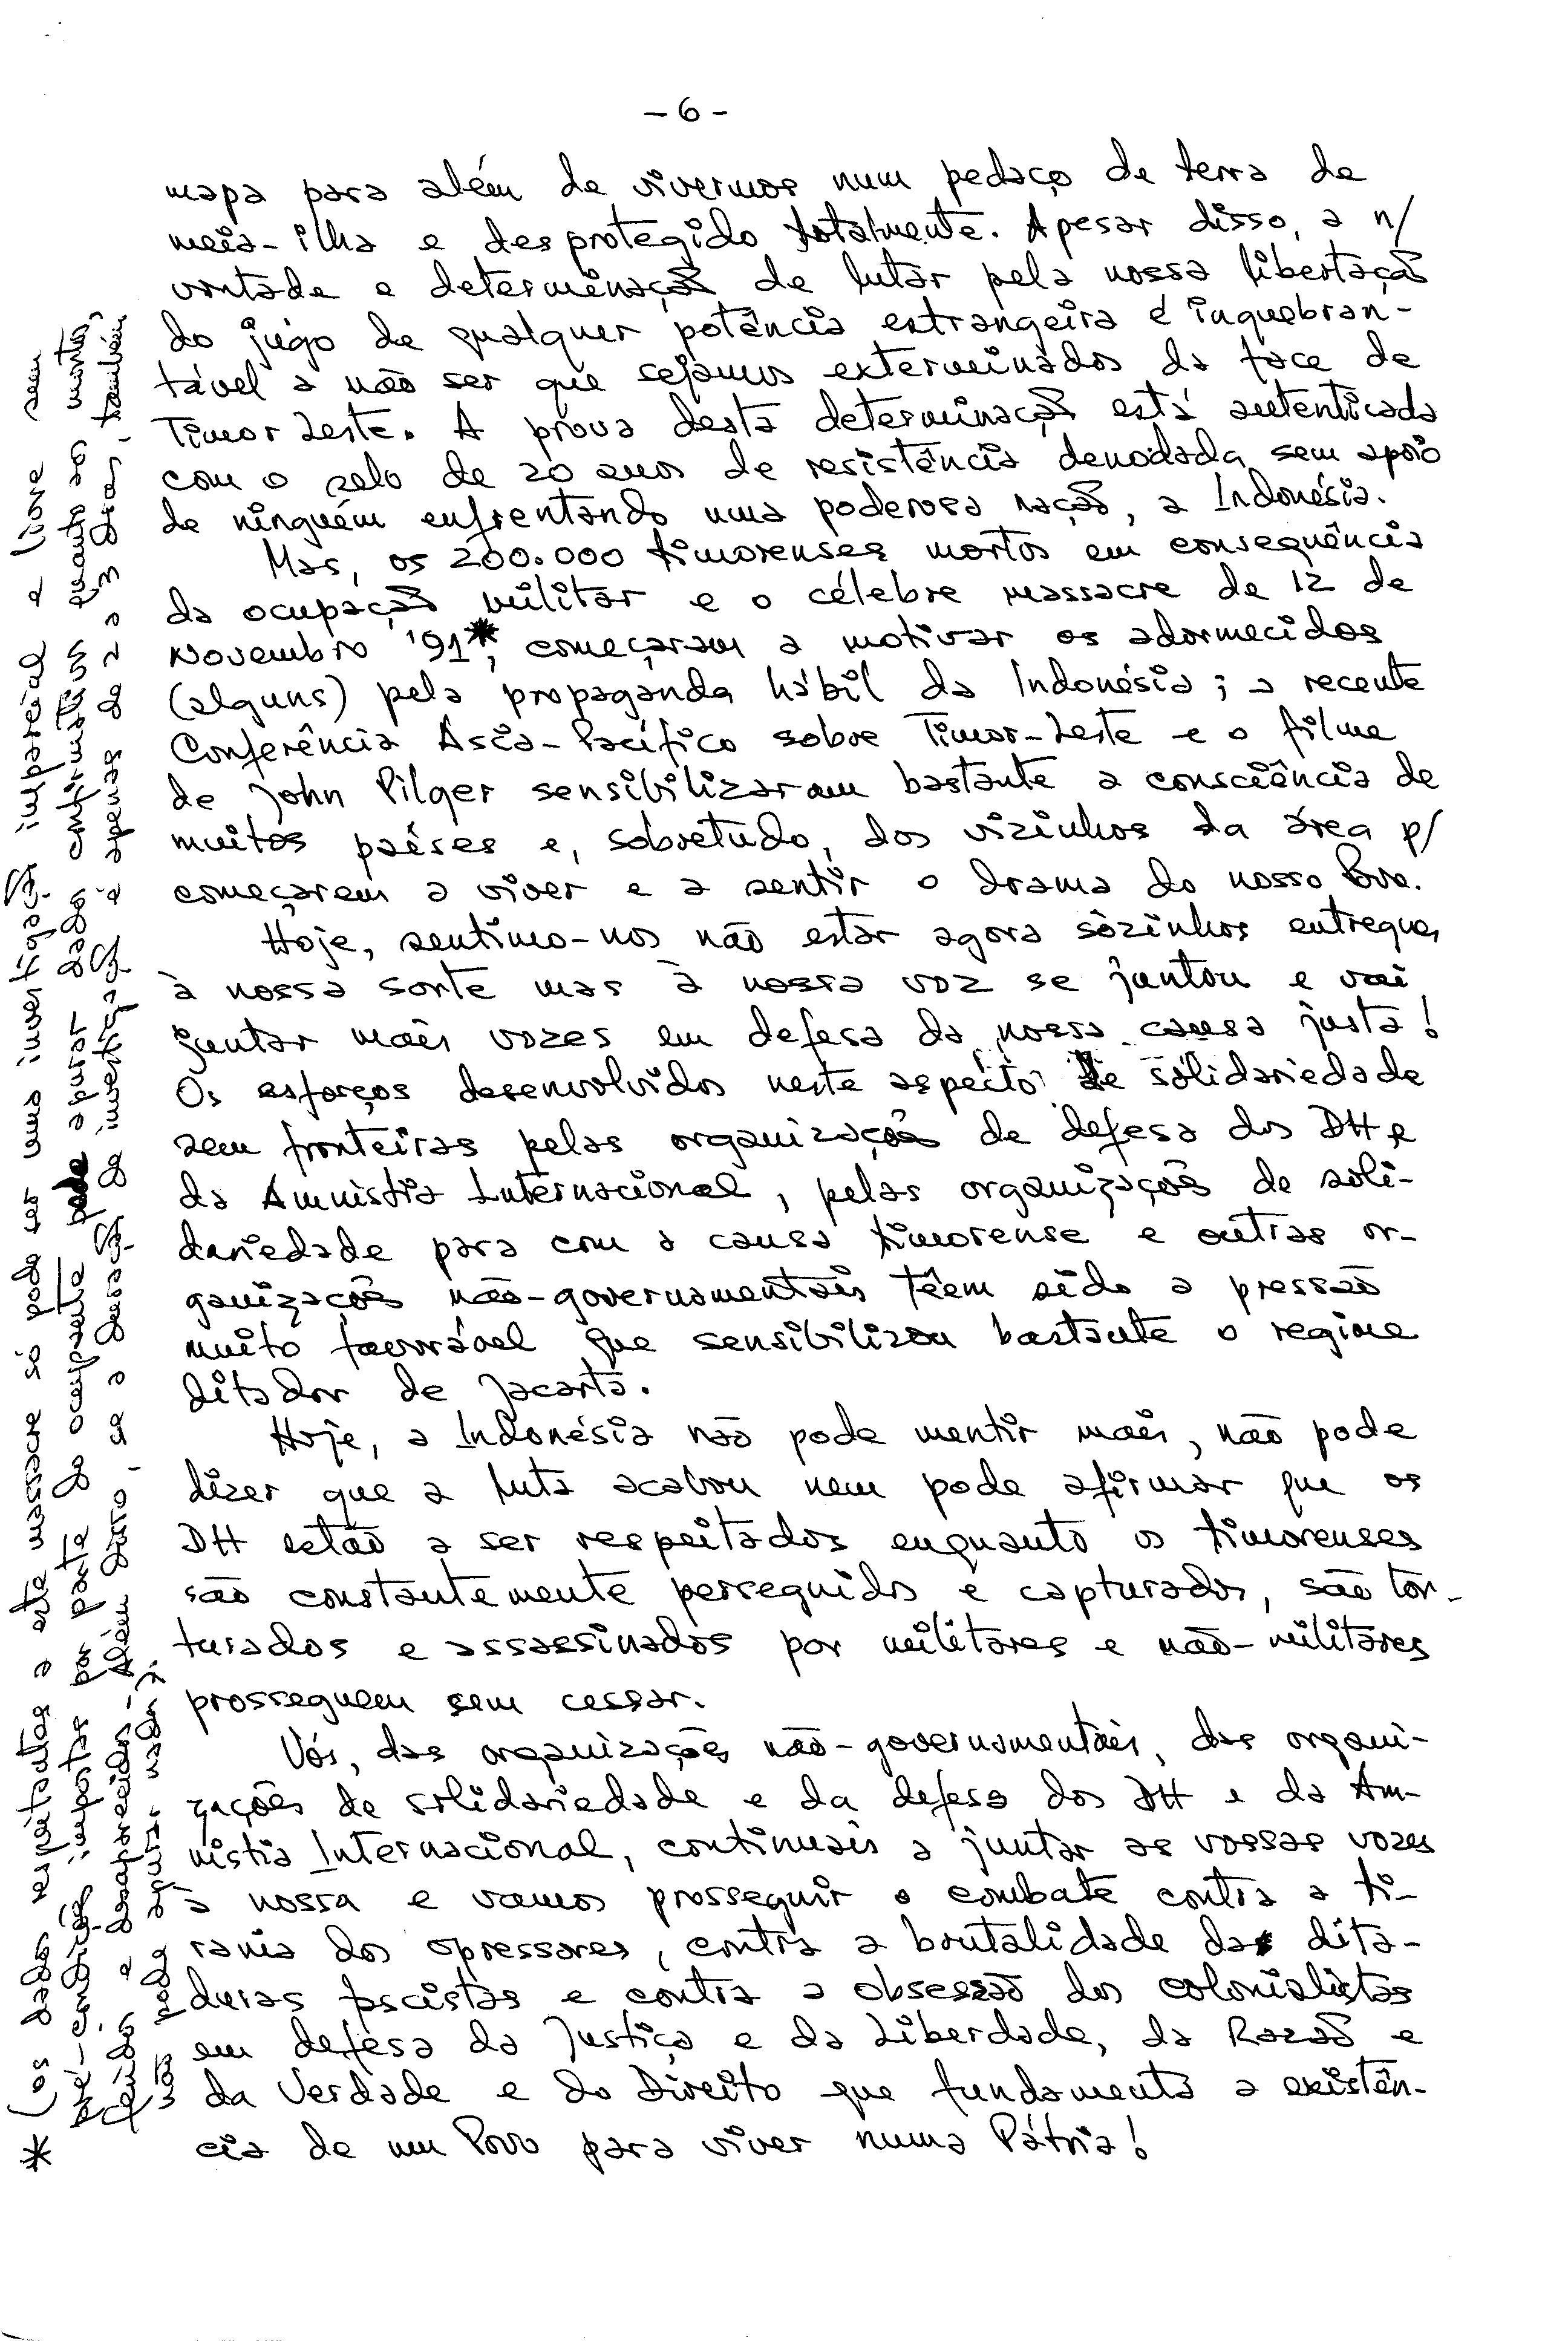 - 6 -
mapa para além de vivermos num pedaço de terra de
meia-ilha e desprotegido totalmente. Apesar disso, a n/
vontade e determinação de lutar pela nossa libertação
do jugo de qualquer potência estrangeira é inquebran-
tável a não ser que sejamos exterminados da face de
Timor Leste. A prova desta determinação está autenticada
com o selo de 20 anos de resistência denodada, sem apoio
de ninguém enfrentando uma poderosa nação, a Indonésia.
Mas, os 200.000 timorenses mortos em consequência
da ocupação militar e o célebre massacre de 12 de
Novembro '91*, começaram a motivar os adormecidos
(alguns) pela propaganda hábil da Indonésia; a recente
Conferência Ásia-Pacífico sobre Timor-Leste e o filme
de John Pilger sensibilizaram bastante a consciência de
muitos países e, sobretudo, dos vizinhos da área p/
começarem a viver e a sentir o drama do nosso Povo.
Hoje, sentimo-nos não estar agora sòzinhos entregues
à nossa sorte mas à nossa voz se juntou e vai
juntar mais vozes em defesa da nossa causa justa!
Os esforços desenvolvidos neste aspecto de solidariedade
sem fronteiras pelas organizações de defesa dos DH e
da Amnistia Internacional, pelas organizações de soli-
dariedade para com a causa timorense e outras or-
ganizações não-governamentais têem sido a pressão
muito favorável que sensibilizou bastante o regime
ditador de Jacarta.
Hoje, a Indonésia não pode mentir mais, não pode
dizer que a luta acabou nem pode afirmar que os
DH estão a ser respeitados enquanto os timorenses
são constantemente perseguidos e capturados, são tor-
turados e assassinados por militares e não-militares
prosseguem sem cessar.
Vós, das organizações não-governamentais, das organi-
zações de solidariedade e da defesa dos DH e da Am-
nistia Internacional, continuais a juntar as vossas vozes
à nossa e vamos prosseguir o combate contra a ti-
rania dos opressores, contra a brutalidade das dita-
duras fascistas e contra a obsessão dos colonialistas
em defesa da Justiça e da Liberdade, da Razão e
da Verdade e do Direito que fundamenta a existên-
cia de um Povo para viver numa Pátria!
* (os dados respeitantes a este massacre só pode ser uma investigação imparcial e livre sem
pré-condições impostas por parte do ocupante pode apurar dados confirmativos quanto aos mortos,
feridos e desaparecidos - Além disso, se a duração da investigação é apenas de 2 a 3 dias, também
não pode apurar nada).